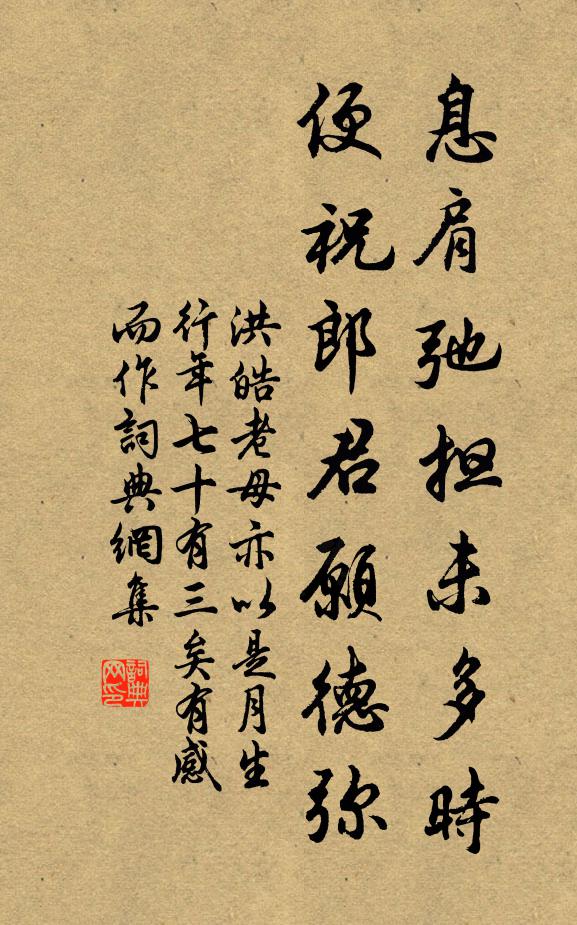 息肩弛担未多時
便祝郎君願德弥
洪皓老母亦以是月生
行年七十有三矣有感
而作詞典網集
詞典网印